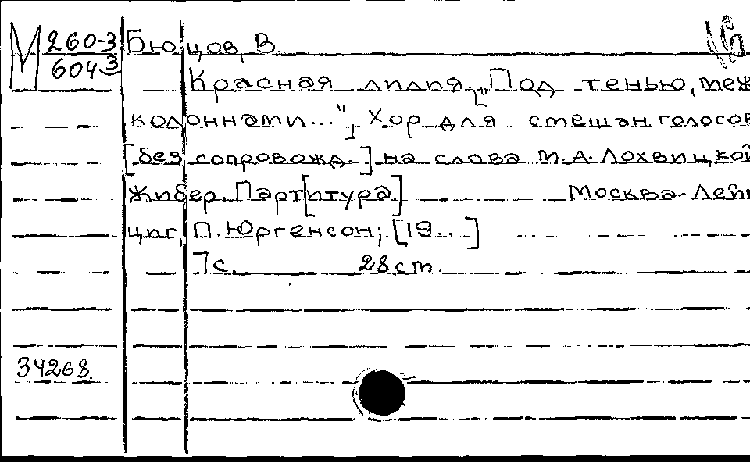 М 260-3 Бюцов, В.
604 3
Красная лилия ["Под тенью, меж
колоннами..."] Хор для смешан. голосов
[без сопровожд.] на слова М.А. Лохвицкой
Жибер. Парт[итура] Москва-Лейп
циг, П. Юргенсон, [19...]
7 с. 28 ст.
34268.